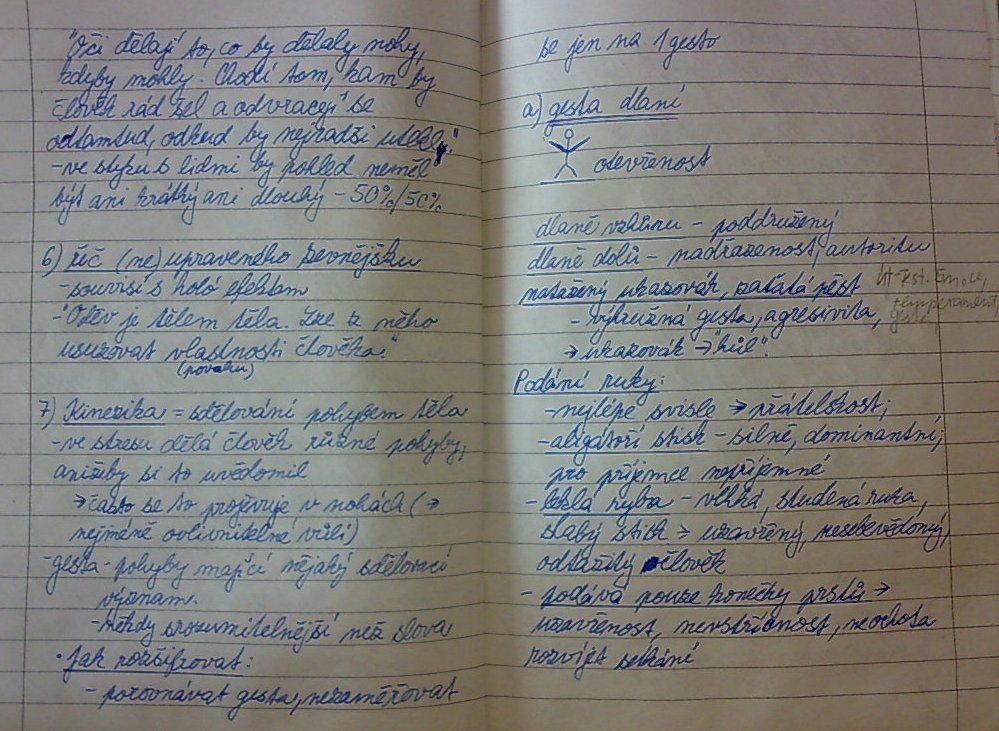 "Oči dělají to, co by dělaly nohy,
kdyby mohly. Chodí tam, kam by
člověk rád šel a odvracejí se
odtamtud, odkud by nejradši utekly."
-ve styku s lidmi by pohled neměl
být ani krátký ani dlouhý - 50%/50%
6) řeč (ne)upraveného zevnějšku
-souvisí s haló efektem
-"Oděv je tělem těla. Lze z něho
usuzovat vlastnosti člověka."
(povahu)
7) Kinezika = sdělování pohybem těla
-ve stresu dělá člověk různé pohyby,
anižby si to uvědomil
→ často se to projevuje v nohách (→
nejméně ovlivnitelné vůlí)
-gesta - pohyby mající nějaký sdělovací
význam.
-někdy srozumitelnější než slova
• Jak rozšifrovat:
- porovnávat gesta, nezaměřovat
se jen na 1 gesto
a) gesta dlaní
otevřenost
dlaně vzhůru - poddružený
dlaně dolů - nadřazenost, autoritu
natažený ukazovák, zaťatá pěst
- výhružná gesta, agresivita,
→ ukazovák → "hůl".
temperament
Podání ruky:
-nejlépe svisle → přátelskost;
-aligátoří stisk - silné, dominantní;
pro příjemce nepříjemné
- leklá ryba - vlhká, studená ruka,
slabý stisk → uzavřený, nesebevědomý,
odtažitý člověk
- podává pouze konečky prstů →
uzavřenost, nevstřícnost, neochota
rozvíjet setkání